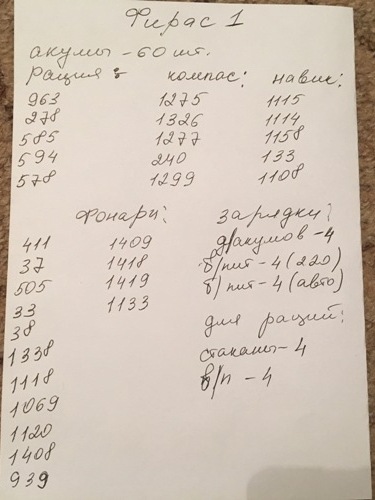 Фирас 1
акумы - 60 шт.
рация: компас: навик:
963 1275 1115
278 1326 1114
585 1277 1158
594 240 133
578 1299 1108
фонари: зарядки:
411 1409 д/акумов - 4
37 1418 б/пит - 4 (220)
505 1419 б/пит - 4 (авто)
33 1133
38 для раций:
1338 стаканы - 4
1118 б/п - 4
1069
1120
1408
939